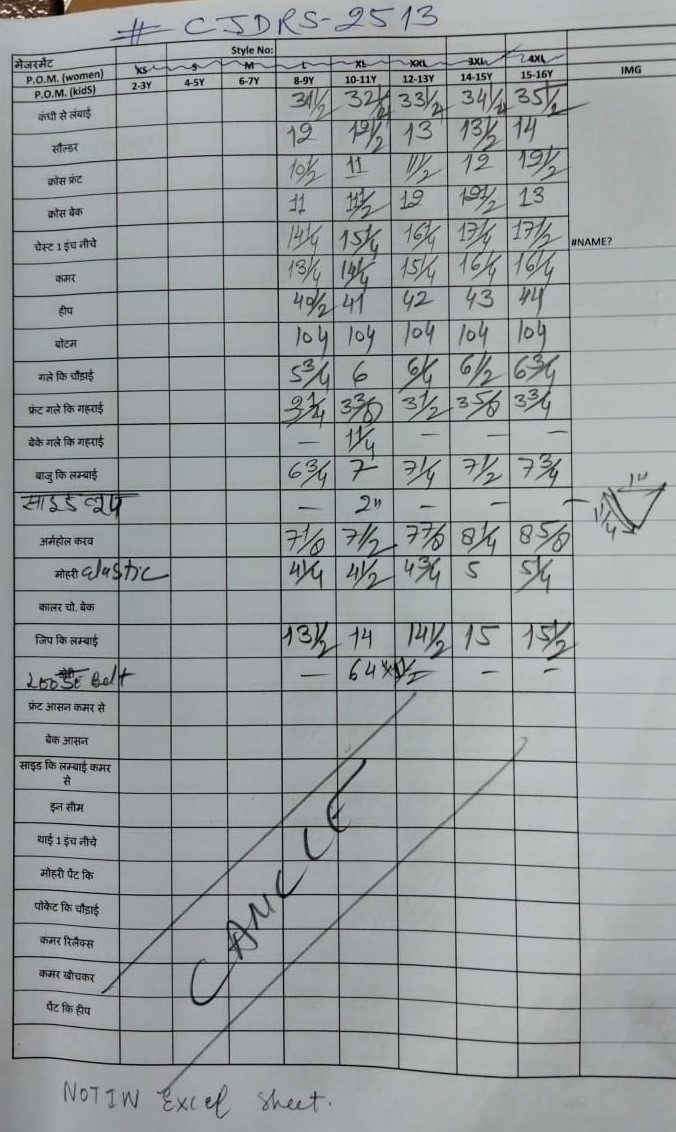 # CJDRS-2513
Style No:
मेजरमेंट
P.O.M. (women) XS S M L XL XXL 3XL 4XL IMG
P.O.M. (kidS) 2-3Y 4-5Y 6-7Y 8-9Y 10-11Y 12-13Y 14-15Y 15-16Y
कंधी से लंबाई 31 1/2 32 1/2 33 1/2 34 1/2 35 1/2
सौल्डर 12 12 1/2 13 13 1/2 14
क्रोस फ्रंट 10 1/2 11 11 1/2 12 12 1/2
क्रोस बेक 11 11 1/2 12 12 1/2 13
चेस्ट 1 इंच नीचे 14 1/4 15 1/4 16 1/4 17 1/4 17 1/2 #NAME?
कमर 13 1/4 14 1/4 15 1/4 16 1/4 16 1/4
हीप 40 1/2 41 42 43 44
बोटम 104 104 104 104 104
गले कि चौडाई 5 3/4 6 6 1/4 6 1/2 6 3/4
फ्रंट गले कि गहराई 3 1/4 3 3/8 3 1/2 3 5/8 3 3/4
बेके गले कि गहराई — 1 1/4 — — —
बाजु कि लम्बाई 6 3/4 7 7 1/4 7 1/2 7 3/4
साइड — 2" — — — 1" 1 1/4
अर्महोल करव 7 1/8 7 1/2 7 7/8 8 1/4 8 5/8
मोहरी elastic 4 1/4 4 1/2 4 3/4 5 5 1/4
कालर चो. बेक
जिप कि लम्बाई 13 1/2 14 14 1/2 15 15 1/2
Loose Belt — 64 x 1 1/2 — —
फ्रंट आसन कमर से
बेक आसन
साइड कि लम्बाई कमर
से
इन सीम
थाई 1 इंच नीचे
मोहरी पेंट कि
पोकेट कि चौड़ाई
कमर रिलैक्स
कमर खीचकर
पेंट कि हीप
CANCLE
NOT IN Excel Sheet.